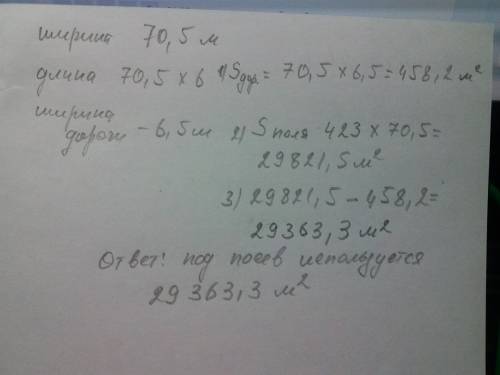 ширина 70,5 м
длина 70,5 × 6 1) Sдор = 70,5 × 6,5 = 458,2 м²
ширина
дороги – 6,5 м 2) S поля 423 × 70,5 =
29821,5 м²
3) 29821,5 – 458,2 =
29363,3 м²
Ответ: под посев используется
29363,3 м²